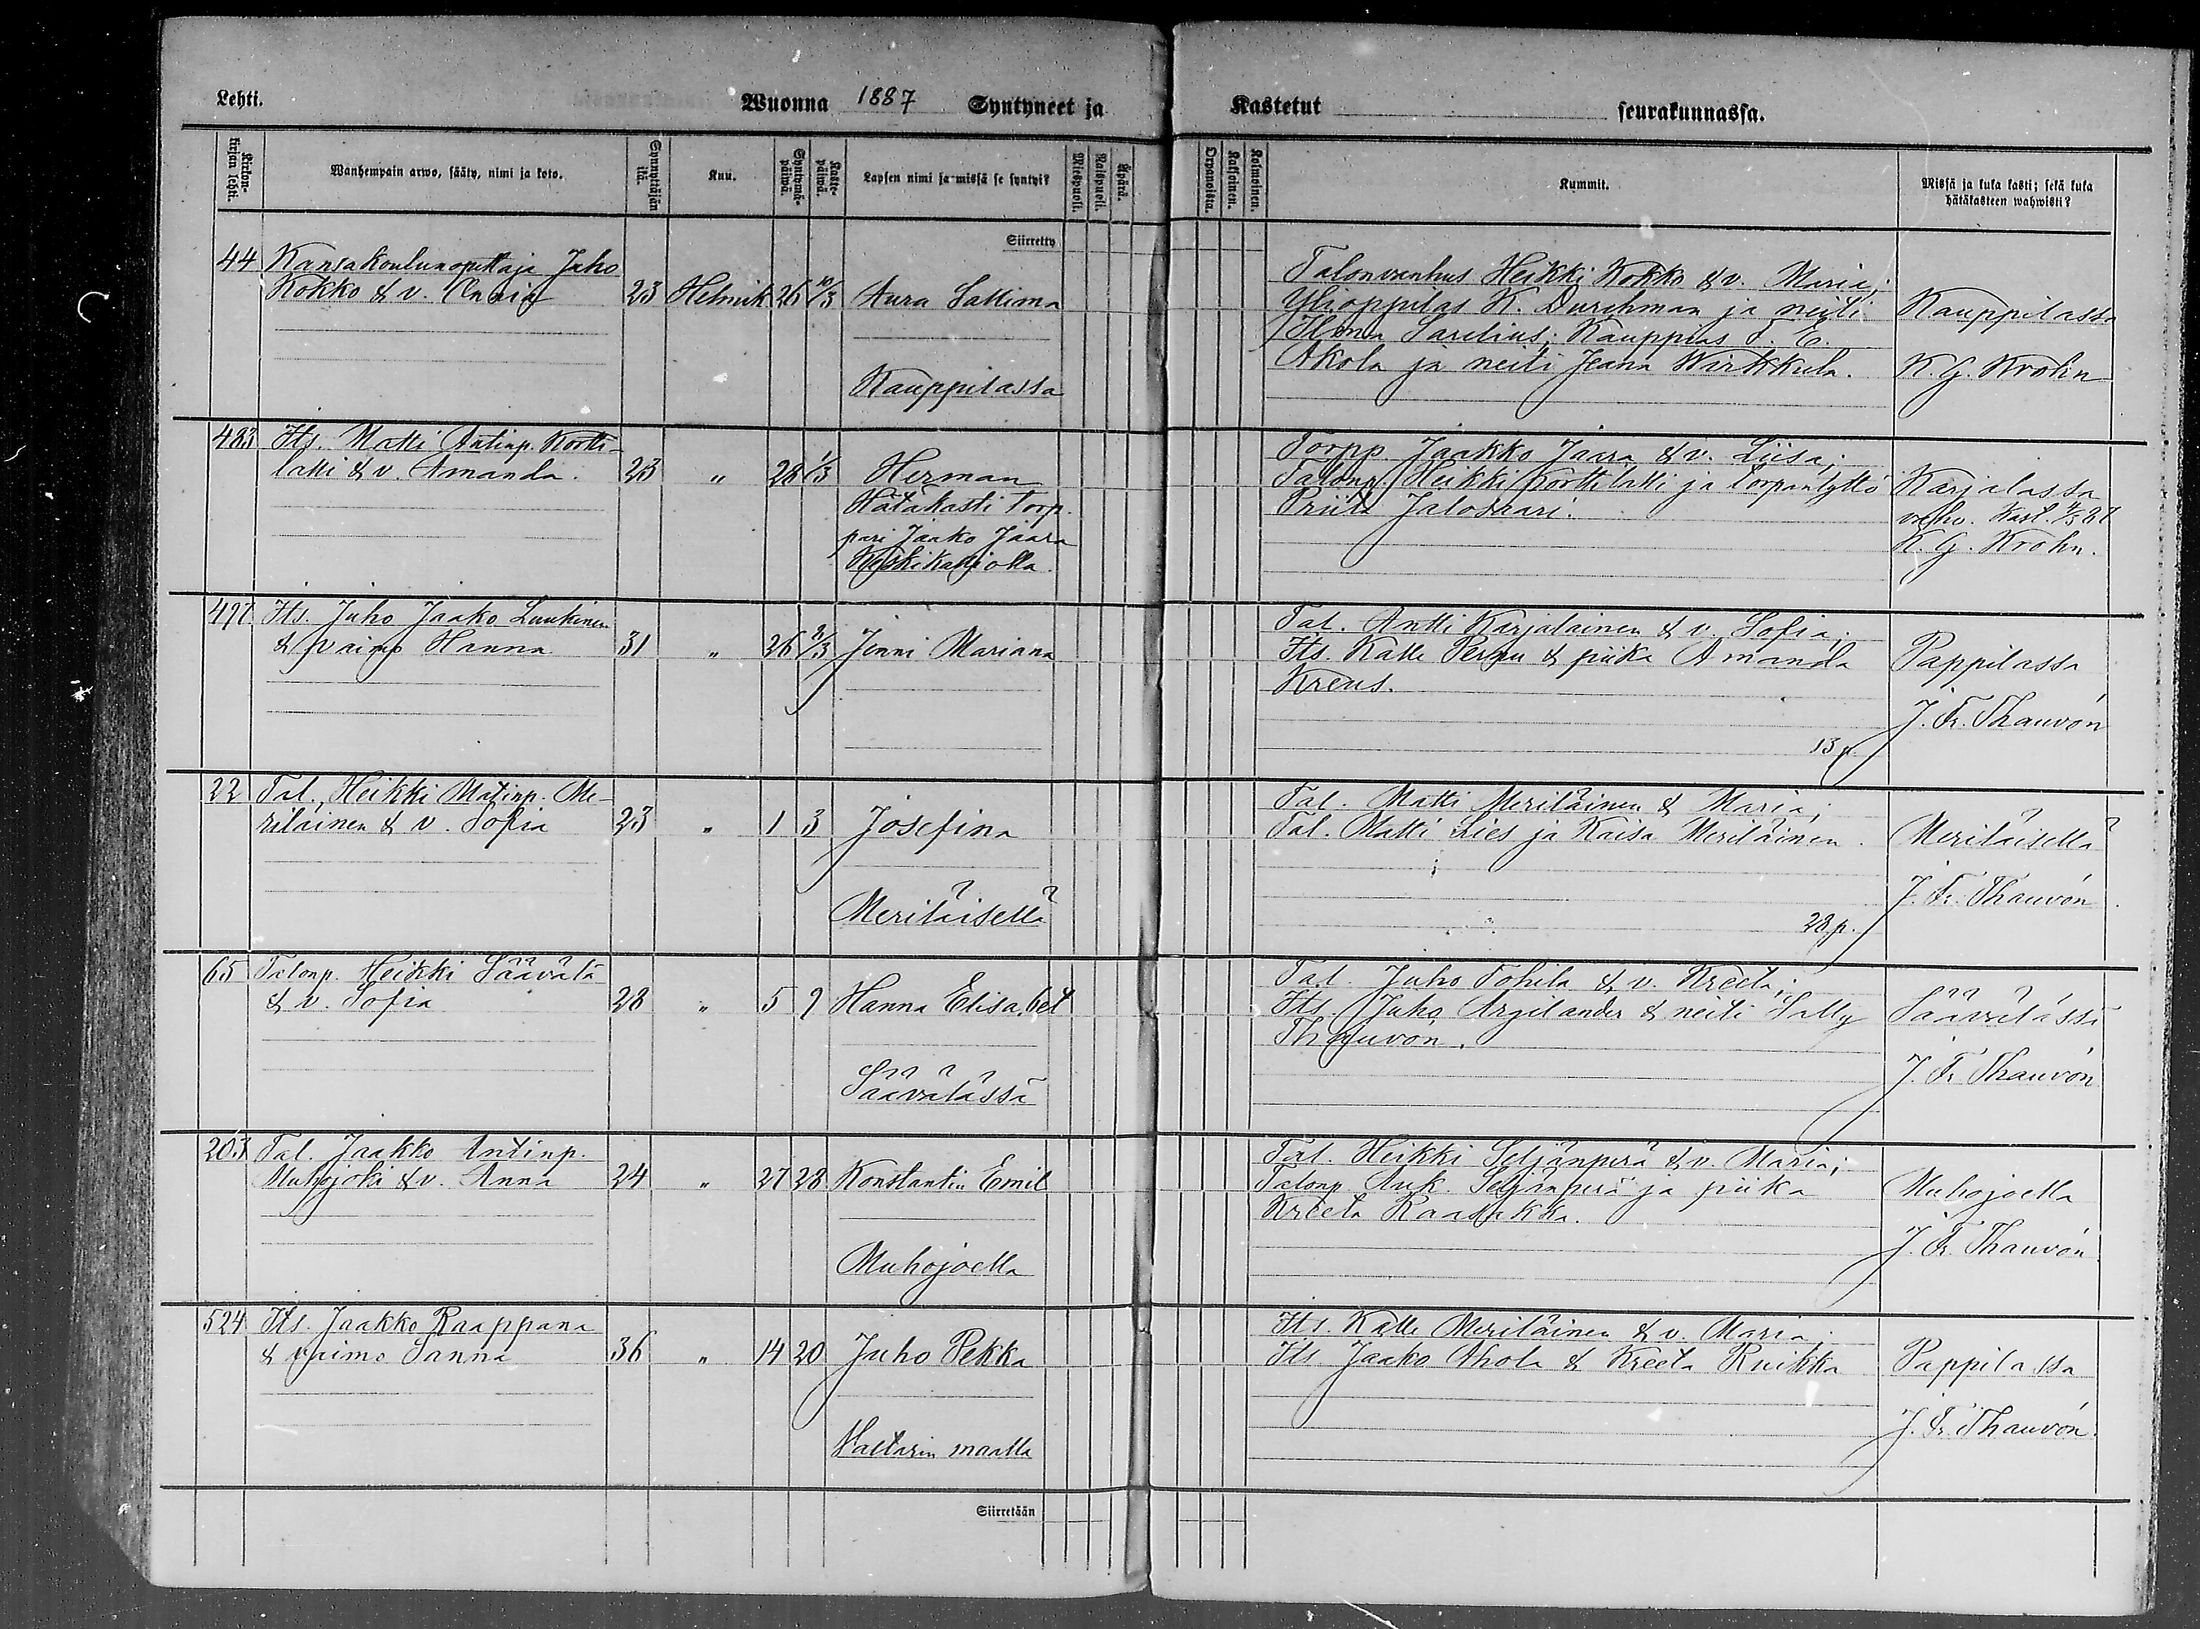 Lehti.
Wuonna 1887 Syntyneet ja
Kastetut seurakunnassa.
Kirkon-kirjan lehti.
Wanhempain arwo, sääty, nimi ja koto.
Synnyttäjän ikä.
Kuu.
Syntymä-päiwä.
Kaste-päiwä.
Lapsen nimi ja missä se syntyi?
Miespuoli.
Naispuoli.
Äpärä.
Orpanoista.
Kaksoinen.
Kolmoinen.
Kummit.
Missä ja kuka kasti; sekä kuka hätäkasteen wahwisti?
Siirretty
44 Kansakoulunopettaja Juho
Kokko & v. 23 Helmik. 26 10/3 Aura Sattima
Kauppilassa
Talonvanhus Heikki Kokko & v. Maria;
Ylioppilas K. Durchman ja neiti
Hilma Sarelius; Kauppias F. E.
Akola ja neiti Jeana Wirkkula.
Kauppilassa
K. G. Krohn
483 Its. Matti Antinp. Kortti-
latti & v. Amanda. 23 " 28 1/3 Herman
Hätäkasti torp.
pari Jaako Jaara
Keskikarjolla.
Torpp. Jaakko Jaara & v. Liisa;
Talonp. Heikki Korttilatti ja torpantyttö
Priita Jaloskari.
Karjalassa
K. G. Krohn.
497 Its. Juho Jaako Luukinen
& vaimo Hanna 31 " 26 21/3 Jenni Mariana
Tal. Antti Karjalainen & v. Sofia;
Its. Kalle Perttu & piika Amanda
Kreus.
13 p.
Pappilassa
J. Fr. Thauvón
22 Tal. Heikki Matinp. Me-
riläinen & v. Sofia 23 " 1 3 Josefina
Meriläisellä
Tal. Matti Meriläinen & Maria;
Tal. Matti Lies ja Kaisa Meriläinen.
28 p.
Meriläisellä
J. Fr. Thauvón
65 Talonp. Heikki Säävälä
& v. Sofia 28 " 5 9 Hanna Elisabet
Säävälässä
Tal. Juho Tohila & v. Kreeta;
Its. Juho Argilander & neiti Sally
Thauvón.
Säävälässä
J. Fr. Thauvón
203 Tal. Jaakko Antinp.
Muhojoki & v. Anna 24 " 27 28 Konstantin Emil
Muhojoella
Tal. Heikki Seljänperä & v. Maria;
Talonp. Auk. Seljänperä ja piika
Kreeta Raasakka.
Muhojoella
J. Fr. Thauvón
524 Its. Jaakko Raappana
& vaimo Sanna 36 " 14 20 Juho Pekka
Valtarin maalla
Its. Kalle Meriläinen & v. Maria;
Its. Jaako Ahola & Kreeta Ruikka
Pappilassa
J. Fr. Thauvón.
Siirretään